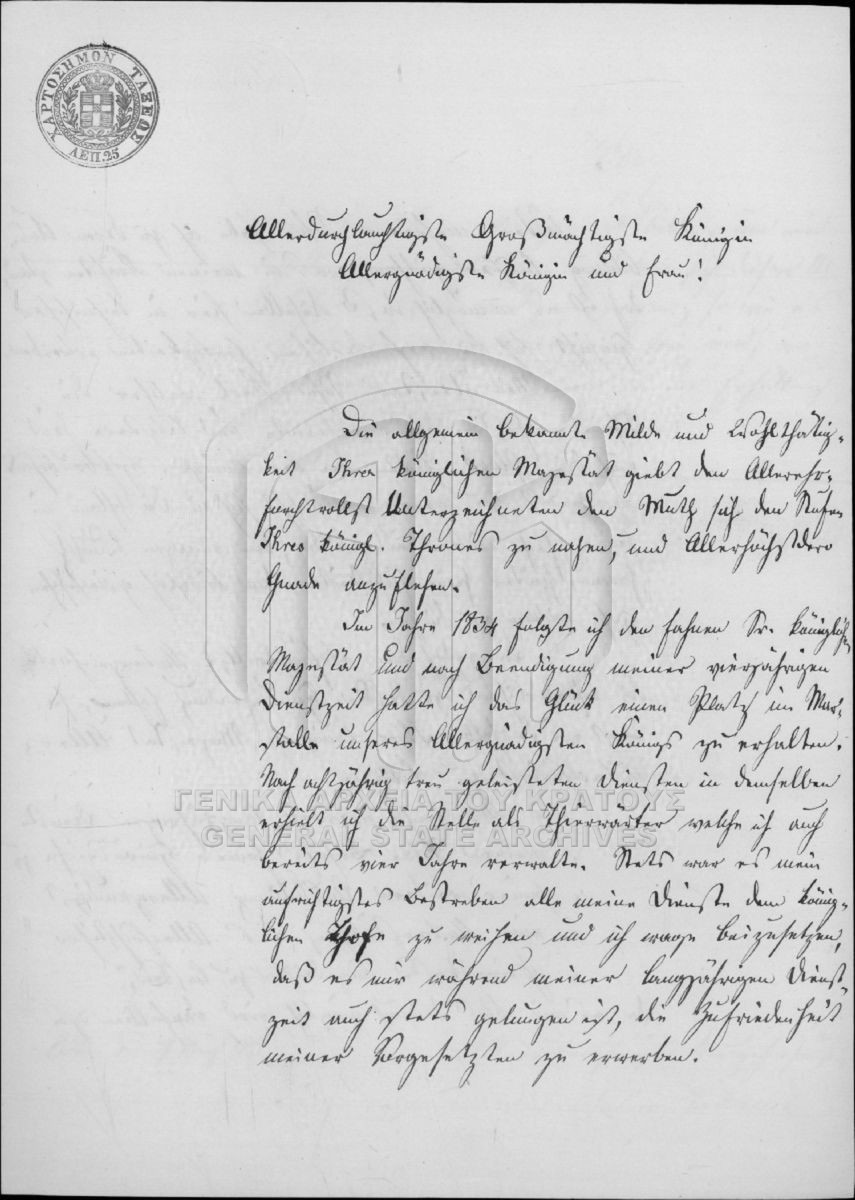 ΧΑΡΤΟΣΗΜΟΝ ΤΑΞΕΩΣ
ΛΕΠ. 25
Allerdurchlauchtigste Großmächtigste Königin
Allergnädigste Königin und Frau!
Die allgemein bekannte Milde und Wohlthätig-
keit Ihrer königlichen Majestät giebt den Allerehr-
furchtvollst Unterzeichneten den Muth sich den Stufen
Ihres königl. Thrones zu nahen, und Allerhöchstdero
Gnade anzuflehen.
Im Jahre 1834 folgte ich den Fahnen Sr. königlichen
Majestät und nach Beendigung meiner vierjährigen
Dienstzeit hatte ich das Glück einen Platz im Mar-
stalle unseres Allergnädigsten Königs zu erhalten.
Nach achtjährig treu geleisteten Diensten in demselben
erhielt ich die Stelle als Thierwärter welche ich auch
bereits vier Jahre verwalte. Stets war es mein
aufrichtigstes Bestreben alle meine Dienste dem könig-
lichen Hofe zu weihen und ich wage beizusetzen,
daß es mir während meiner langjährigen Dienst-
zeit auch stets gelungen ist, die Zufriedenheit
meiner Vorgesetzten zu erwerben.
ΓΕΝΙΚΑ ΑΡΧΕΙΑ ΤΟΥ ΚΡΑΤΟΥΣ
GENERAL STATE ARCHIVES